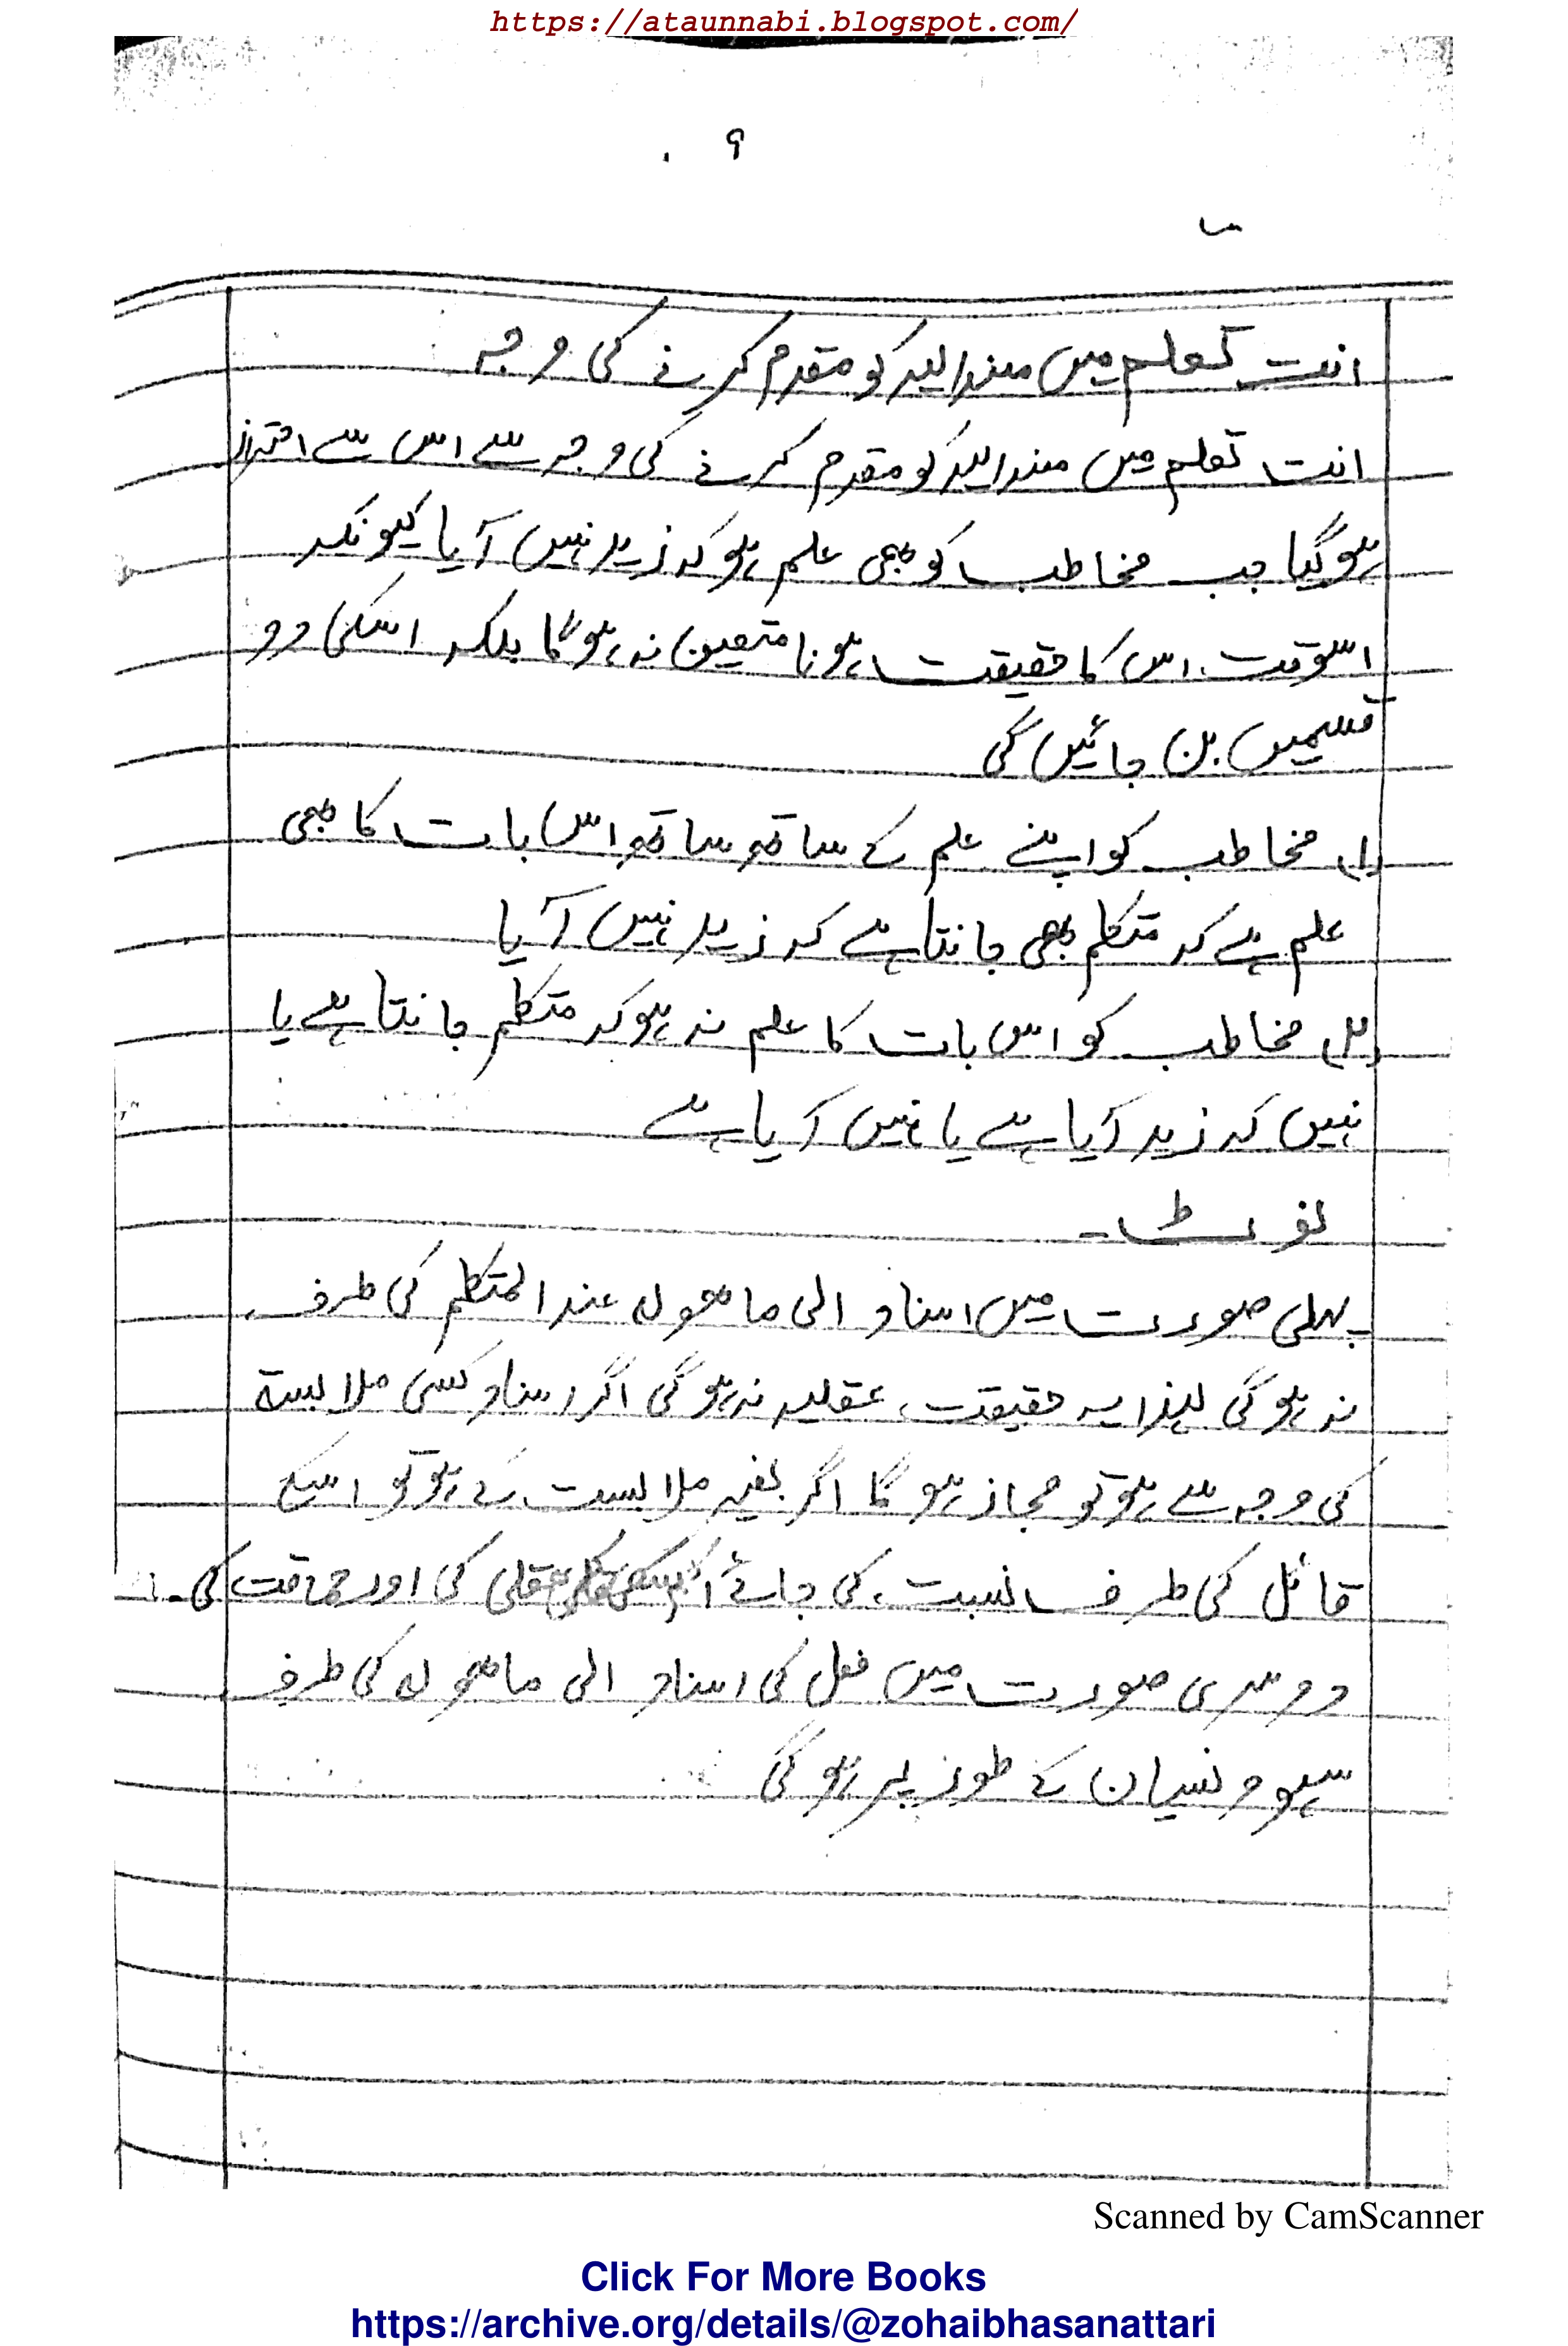 https://ataunnabi.blogspot.com/
۹
انت تعلم میں مسندالیہ کو مقدم کرنے کی وجہ
انت تعلم میں مسندالیہ کو مقدم کرنے کی وجہ سے اس سے احتراز
ہوگیا جب مخاطب کو بھی علم ہو کہ زید نہیں آیا کیونکہ
اسوقت اس کا حقیقت ہونا متعین نہ ہوگا بلکہ اسکی دو
قسمیں بن جائیں گی
(۱) مخاطب کو اپنے علم کے ساتھ ساتھ اس بات کا بھی
علم ہے کہ متکلم بھی جانتا ہے کہ زید نہیں آیا
(۲) مخاطب کو اس بات کا علم نہ ہو کہ متکلم جانتا ہے یا
نہیں کہ زید آیا ہے یا نہیں آیا ہے
نوٹ۔
پہلی صورت میں اسناد الی ماھولہ عندالمتکلم کی طرف
نہ ہوگی لہذا یہ حقیقت عقلیہ نہ ہوگی اگر اسناد کسی ملابستہ
کی وجہ سے ہو تو مجاز ہوگا اگر بغیر ملابست کے ہو تو اسکے
قائل کی طرف نسبت کی جائے عقلی کی اور حماقت کی۔
دوسری صورت میں فعل کی اسناد الی ماھولہ کی طرف
سہو و نسیان کے طور پر ہوگی
Scanned by CamScanner
Click For More Books
https://archive.org/details/@zohaibhasanattari